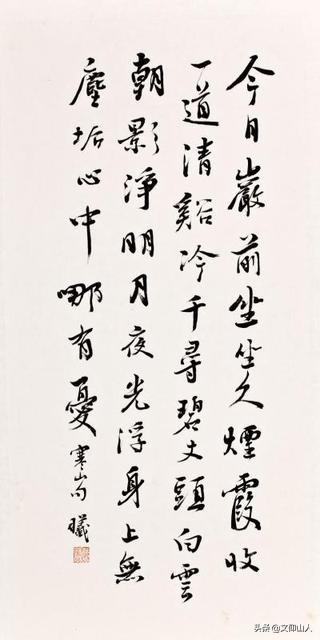 今日巖前坐坐久煙霞收
一道清谿冷千尋碧丈頭白雲
朝影淨明月夜光浮身上無
塵垢心中哪有憂寒山句曦
头条@文仰山人